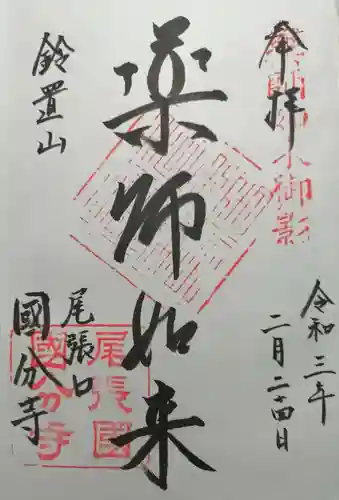 奉拝
令和三年
二月二十四日
薬師如来
鈴置山
尾張
國分寺
尾張國
國分寺